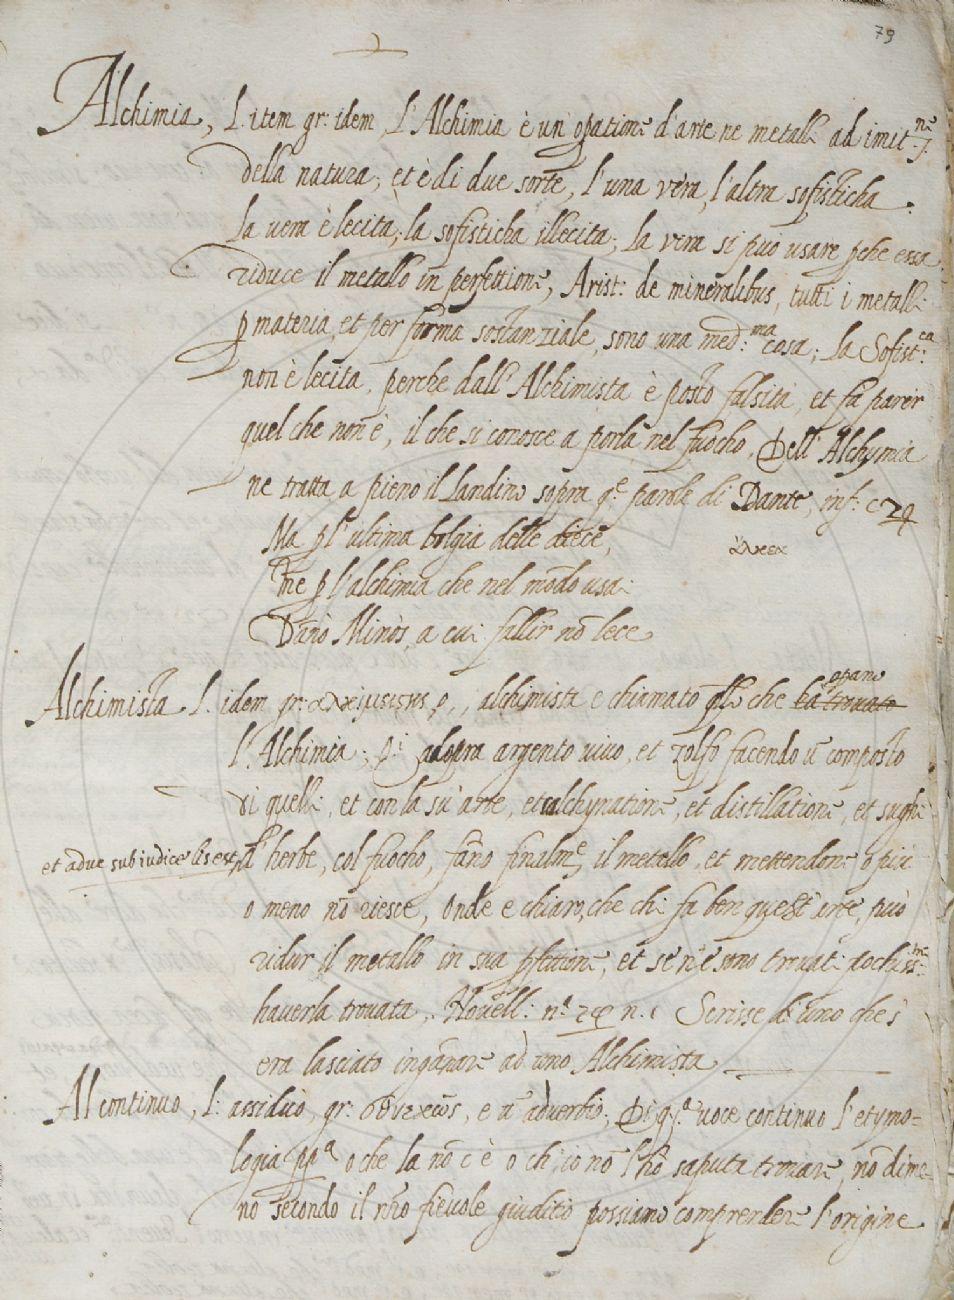 79
Alchimia, L. item gr: idem, L'Alchimia è un' opatiōe d'arte ne metalli ad imitne.
della natura; et è di due sorte, l'una vera, l'altra sofisticha.
la vera è lecita; la sofisticha illecita; la vera si può usare pche essa
riduce il metallo in perfettione, Arist: de mineralibus, tutti i metalli
p materia, et per forma sostanziale, sono una med:ma cosa; la Sofist:ca
non è lecita, perche dall' Alchimista è posto falsità, et fa parer
quel che non è, il che si conosce a porla nel fuocho. Dell' Alchymia
ne tratta a pieno il Landino sopra q.e parole di Dante, inf: c 29
Ma p l'ultima bolgia delle diece,
Me p l'alchimia che nel mōdo usai
Dānò Minòs, a cui fallir nō lece
Alchimista L. idem gr: alchimista e chiamato qllo che ha trovato opano
l'Alchimia; adopra argento vivo, et zolfo facendo ū composto
di quelli, et con la su' arte, et calchynatione, et distillatione, et sughi
et adue sub iudice lis est, d' herbe, col fuocho, fāno finalm.e il metallo, et mettendone o più
o meno nō riesce, onde e chiaro, che chi fa ben quest' arte, può
ridur il metallo in sua pfettione, et se n'è sono trovati pochiss:mi
haverla trovata. Novell: n. Scrisse di uno che s'
era lasciato ingānare ad uno Alchimista
Al continuo, L: assiduò, gr: e ū adverbio; Di q.a voce continuo l'etymo-
logia ppa o che la nō c'è o ch'io nō l'hō saputa trovare, nō dime-
no secondo il nrō fievole giuditio possiamo comprendere l'origine